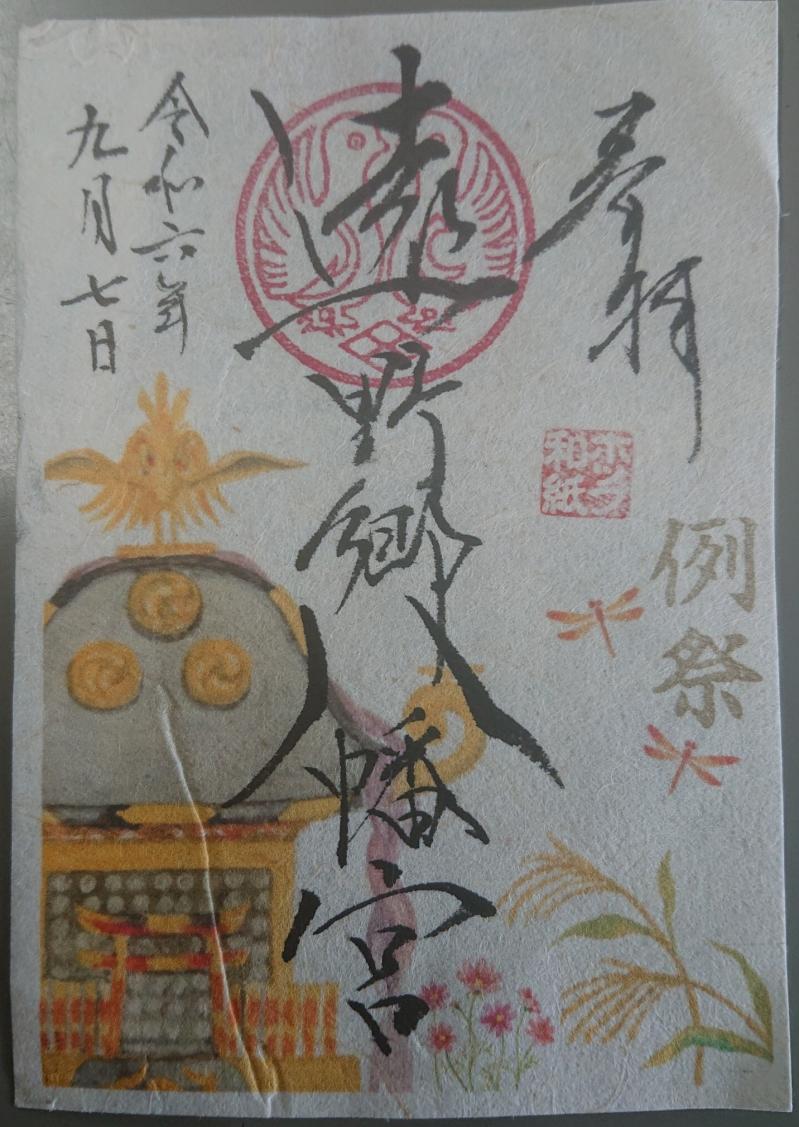 奉拝
例祭
ホヲ和紙
遠野郷八幡宮
令和六年
九月七日